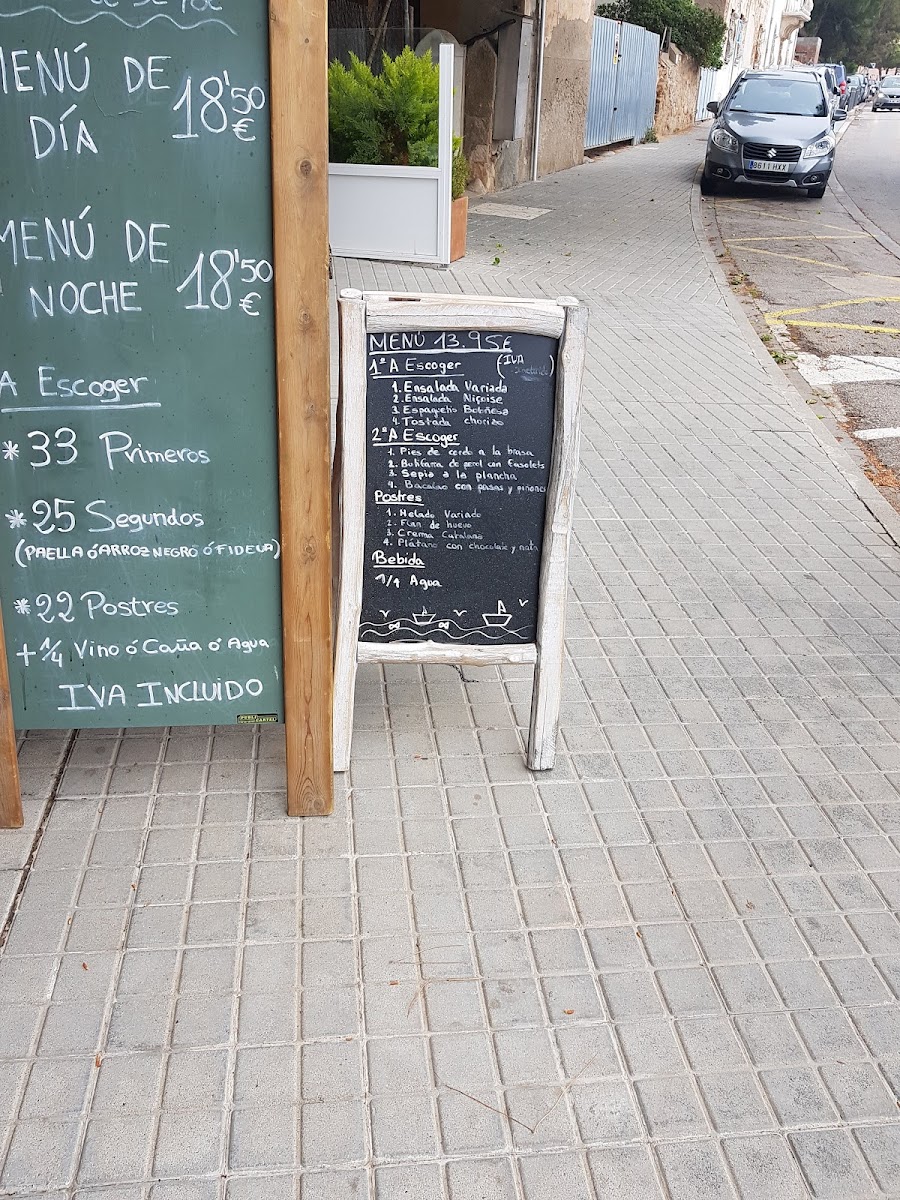 MENÚ DE
DÍA
18'50
€
MENÚ DE
NOCHE
18'50
€
A Escoger
* 33 Primeros
* 25 Segundos
(PAELLA Ó ARROZ NEGRO Ó FIDEUA)
* 22 Postres
+ 1/4 Vino ó Caña ó Agua
IVA INCLUIDO
MENÚ 13.95€
1º A Escoger
(IVA
1. Ensalada Variada
2. Ensalada Niçoise
3. Espaguetis Boloñesa
4. Tostada chorizo
2º A Escoger
1. Pies de cerdo a la brasa
2. Botifarra de perol con Fesolets
3. Sepia a la plancha
4. Bacalao con pasas y piñones
Postres
1. Helado Variado
2. Flan de huevo
3. Crema Catalana
4. Plátano con chocolate y nata
Bebida
1/1 Agua
8611 HXX